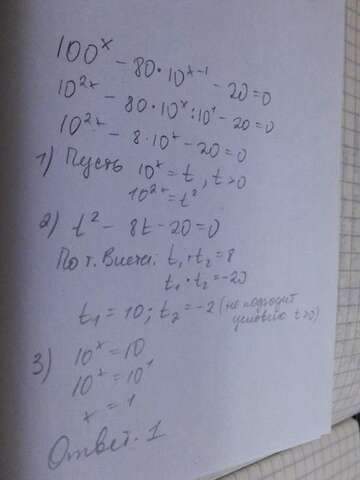 100ˣ - 80·10ˣ⁻¹ - 20=0
10²ˣ - 80·10ˣ:10¹ - 20=0
10²ˣ - 8·10ˣ - 20=0
1) Пусть 10ˣ = t, t>0
10²ˣ = t²
2) t² - 8t - 20=0
По т. Виета: t₁+t₂=8
t₁·t₂=-20
t₁=10; t₂=-2 (не подходит
условию t>0)
3) 10ˣ=10
10ˣ=10¹
x=1
Ответ. 1